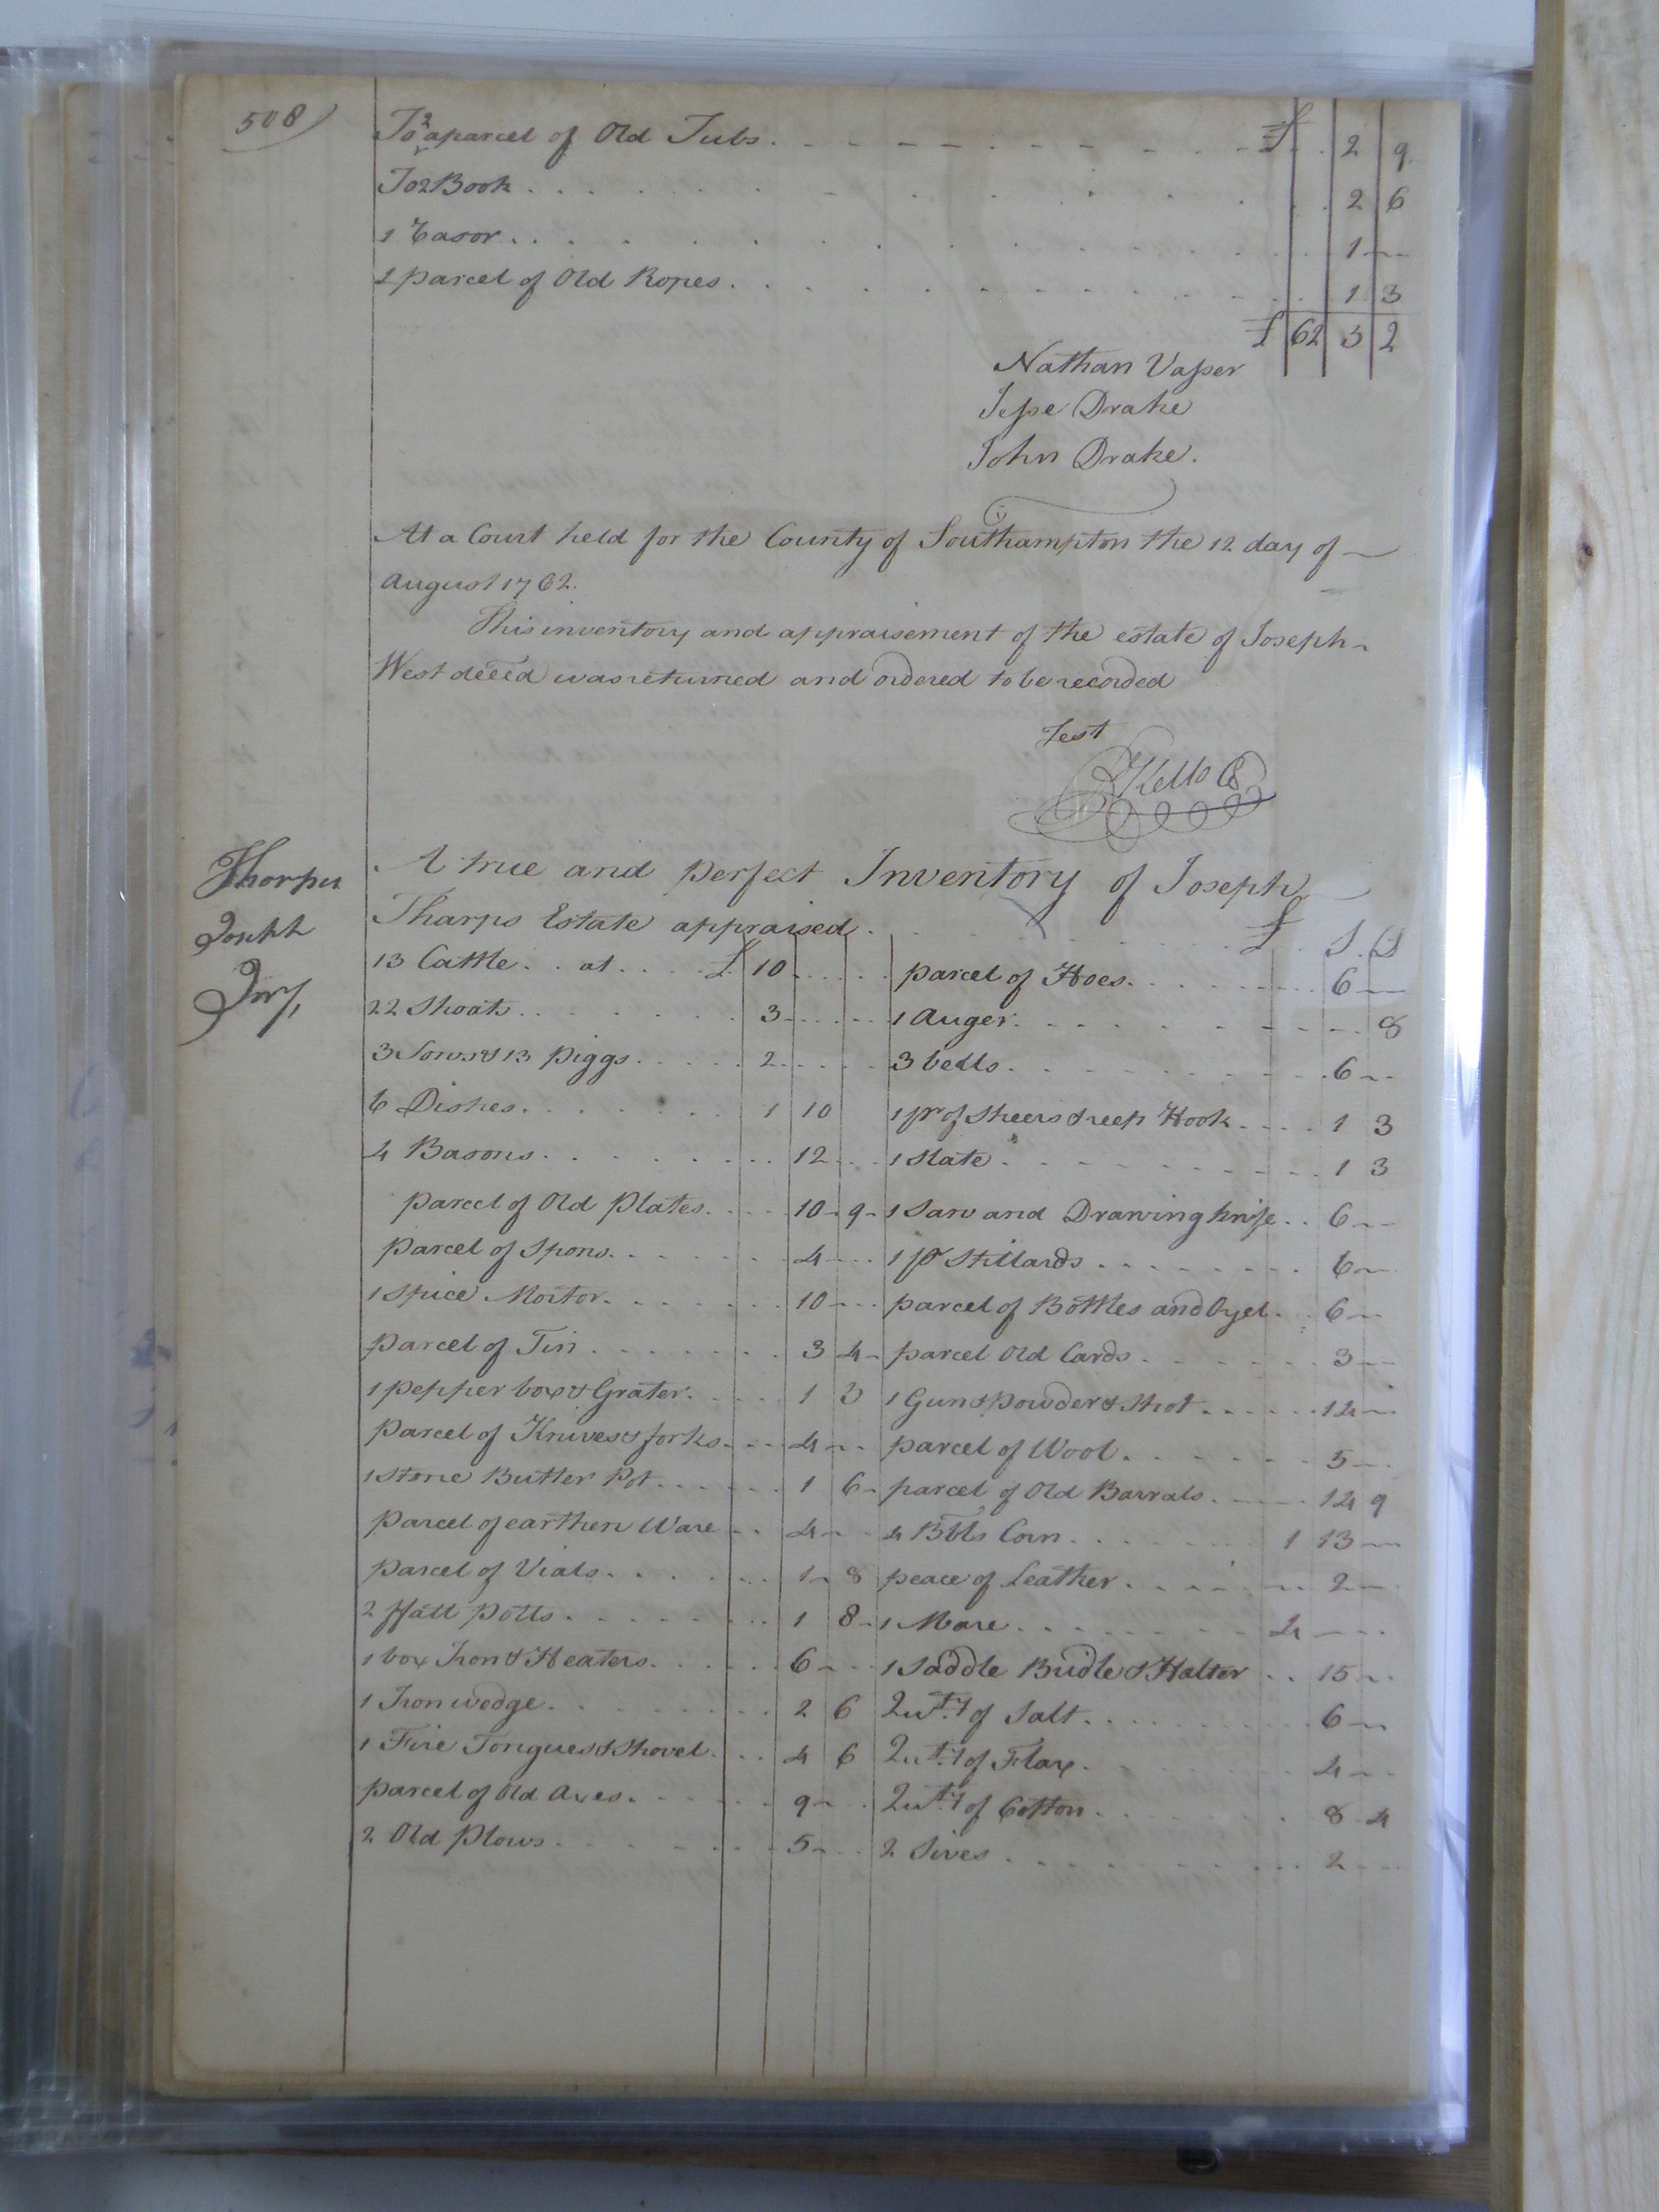 508)
To 2 a parcel of Old Tubs. £ 2 9
To 2 Book 2 6
1 1
1 parcel of Old Ropes. 1 3
£ 62 3 2
Nathan Vasser
Jesse Drake
John Drake.
At a Court held for the County of Southampton the 12 day of
August 1762.
This inventory and appraisement of the estate of Joseph
West deced was returned and ordered to be recorded
Test
Kello
Thorpes
Joseph
Invy,
A true and perfect Inventory of Joseph
Tharps Estate appraised. £ S D
13 Cattle at £ 10
22 Shoats 3
3 Sows & 13 piggs 2
6 Dishes 1 10
4 Basons 12
parcel of Old plates 10 9
parcel of Spons 4
1 Spice Mortor 10
parcel of Tin 3 4
1 pepper box & Grater 1 3
parcel of Knives & forks 4
1 Stone Butter Pot 1 6
parcel of earthen Ware 4
parcel of Vials 1 8
2 ffatt potts 1 8
1 box Iron & Heaters 6
1 Iron wedge 2 6
1 Fire Tongues & Shovel 4 6
parcel of Old Axes 9
2 Old plows 5
parcel of Hoes 6
1 Auger 8
3 bells 6
1 pr of Sheers & reep Hook 1 3
1 Slate 1 3
1 Saw and Drawing knife 6
1 pr Stillards 6
parcel of Bottles and 6
parcel Old Cards 3
1 Gun & powder & Shot 14
parcel of Wool 5
parcel of Old Barrals 14 9
4 Bbls Corn 1 13
peace of Leather 2
1 Mare 4
1 Saddle Bridle & Halter 15
Quty of Salt 6
Quty of Flax 4
Quty of Cotton 8 4
2 Sives 2